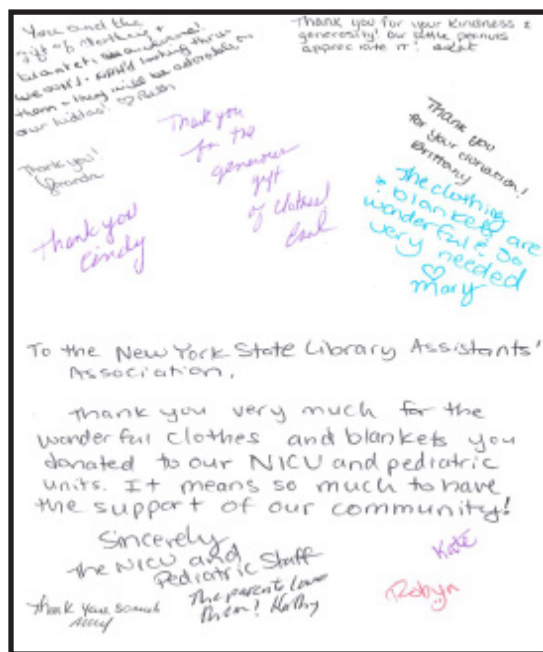 You and the
gift of clothing +
blankets awesome!
we
them - they will be adorable on
our kiddos! ♡
Thank you for your kindness &
generosity! Our little peanuts
appreciate it!
Thank you!
Thank you
for the
generous
gift
of clothes!
Thank you
Cindy
Thank you
for your donation!
Brittany
The clothing
& blankets are
wonderful & so
very needed
♡
Mary
To the New York State Library Assistants'
Association,
Thank you very much for the
wonderful clothes and blankets you
donated to our NICU and pediatric
units. It means so much to have
the support of our community!
Sincerely
The NICU and
Pediatric Staff
Kate
Thank you so much
The parents love
them! Kathy
Robyn